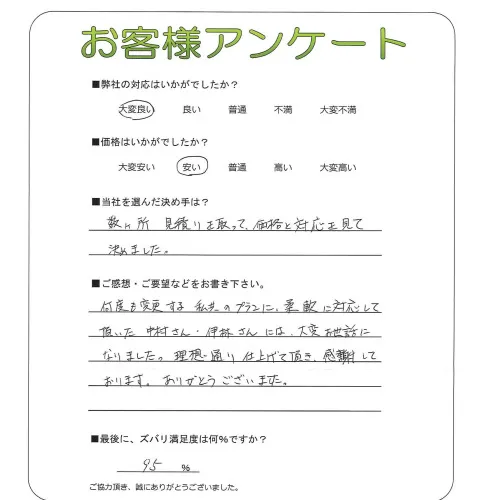 お客様アンケート
■弊社の対応はいかがでしたか？
大変良い 良い 普通 不満 大変不満
■価格はいかがでしたか？
大変安い 安い 普通 高い 大変高い
■当社を選んだ決め手は？
数ヶ所 見積りを取って、価格と対応を見て
決めました。
■ご感想・ご要望などをお書き下さい。
何度も変更する 私共のプランに、柔軟に対応して
頂いた 中村さん・伊林さんには、大変お世話に
なりました。理想通り仕上げて頂き、感謝して
おります。ありがとうございました。
■最後に、ズバリ満足度は何％ですか？
95 ％
ご協力頂き、誠にありがとうございました。